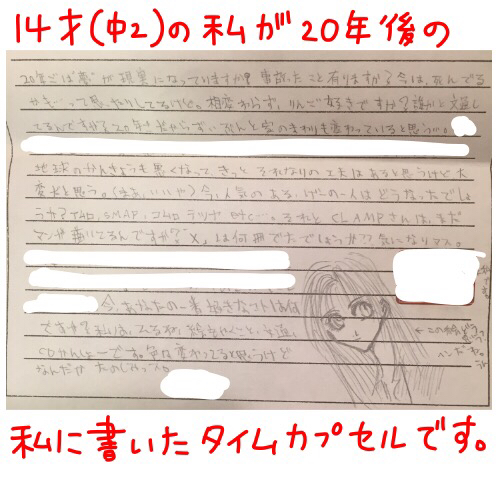 14才(中2)の私が20年後の
20年ごは夢が現実になっていますか? 事故ったこと有りますか? 今は、死んでる
かも…って思ったりしてるけど。相変わらず、りんご好きですか? 誰かと文通し
てるんですか? 20年だからずいぶんと家のまわりも変わっていると思うが。
地球のかんきょうも悪くなって、きっと それなりの工夫はあると思うけど大
変だと思う。(まあ、いいや) 今、人気のある、げーのー人はどうなったでしょ
うか? TMR、SMAP、コムロ テツヤ etc…。それと CLAMPさんは、まだ
マンガ描いてるんですか? "X"は何冊でたでしょうか?? 気になりマス。
今、あなたの一番好きなコトは何
ですか? 私は、 絵をかくこと、文通、
です。 変わってると思うけど
なんだか
← この絵
私に書いたタイムカプセルです。